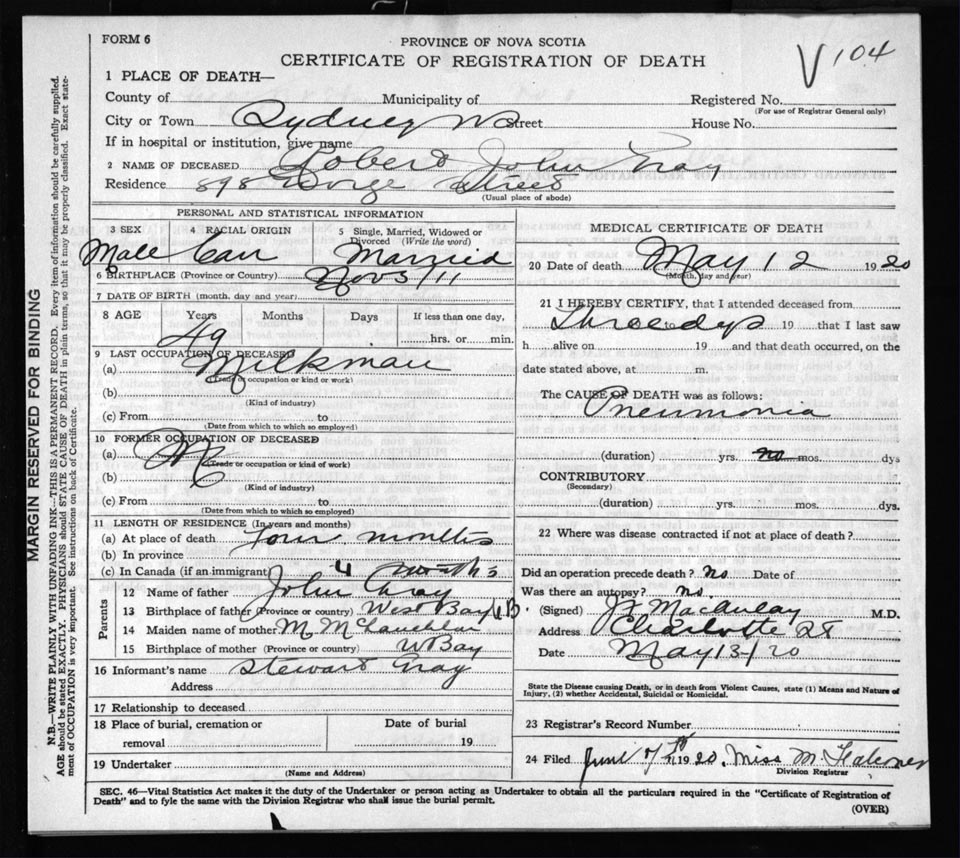 FORM 6
PROVINCE OF NOVA SCOTIA
CERTIFICATE OF REGISTRATION OF DEATH
V 104
1 PLACE OF DEATH—
County of Municipality of Registered No.
(For use of Registrar General only)
City or Town Sydney NS Street House No.
If in hospital or institution, give name
2 NAME OF DECEASED Robert John Gray
Residence 898 George Street
(Usual place of abode)
PERSONAL AND STATISTICAL INFORMATION
3 SEX 4 RACIAL ORIGIN 5 Single, Married, Widowed or Divorced (Write the word)
Male Can Married
6 BIRTHPLACE (Province or Country)
7 DATE OF BIRTH (month, day and year)
8 AGE Years Months Days If less than one day,
49 hrs. or min.
9 LAST OCCUPATION OF DECEASED
(a) Milkman
(Trade or occupation or kind or work)
(b)
(Kind of industry)
(c) From to
(Date from which to which so employed)
10 FORMER OCCUPATION OF DECEASED
(a)
(Trade or occupation or kind of work)
(b)
(Kind of industry)
(c) From to
(Date from which to which so employed)
11 LENGTH OF RESIDENCE (In years and months)
(a) At place of death four months
(b) In province
(c) In Canada (if an immigrant) 4 months
Parents
12 Name of father John Gray
13 Birthplace of father (Province or country) West Bay
14 Maiden name of mother M McLauchlan
15 Birthplace of mother (Province or country) W Bay
16 Informant's name Stewart Gray
Address
17 Relationship to deceased
18 Place of burial, cremation or removal Date of burial 19
19 Undertaker
(Name and Address)
MEDICAL CERTIFICATE OF DEATH
20 Date of death May 12 1920
(Month, day and year)
21 I HEREBY CERTIFY, that I attended deceased from
Three dys to 19 that I last saw
h alive on 19 and that death occurred, on the
date stated above, at m.
The CAUSE OF DEATH was as follows:
Pneumonia
(duration) yrs. no mos. dys
CONTRIBUTORY
(Secondary)
(duration) yrs. mos. dys.
22 Where was disease contracted if not at place of death?
Did an operation precede death? No Date of
Was there an autopsy? No.
(Signed) MacAulay M.D.
Address Charlotte St
Date May 13-/20
State the Disease causing Death, or in death from Violent Causes, state (1) Means and Nature of
Injury, (2) whether Accidental, Suicidal or Homicidal.
23 Registrar's Record Number
24 Filed June 7th 1920. Miss M. Falconer
Division Registrar
SEC. 46—Vital Statistics Act makes it the duty of the Undertaker or person acting as Undertaker to obtain all the particulars required in the "Certificate of Registration of
Death" and to fyle the same with the Division Registrar who shall issue the burial permit.
(OVER)
MARGIN RESERVED FOR BINDING
N.B.—WRITE PLAINLY WITH UNFADING INK—THIS IS A PERMANENT RECORD. Every item of information should be carefully supplied.
AGE should be stated EXACTLY. PHYSICIANS should STATE CAUSE OF DEATH in plain terms, so that it may be properly classified. Exact statement of OCCUPATION is very important. See instructions on back of Certificate.